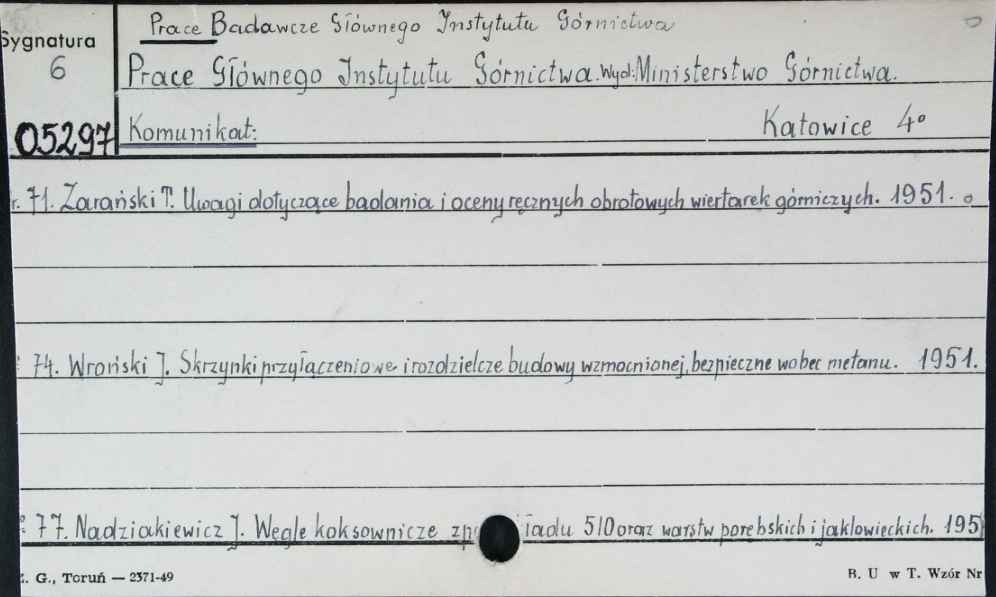 Prace Badawcze Głównego Instytutu Górnictwa
Sygnatura
6
Prace Głównego Instytutu Górnictwa. Wyd. Ministerstwo Górnictwa.
05297
Komunikat: Katowice 4°
r. 71. Zarański T. Uwagi dotyczące badania i oceny ręcznych obrotowych wiertarek górniczych. 1951.
74. Wroński J. Skrzynki przyłączeniowe i rozdzielcze budowy wzmocnionej, bezpieczne wobec metanu. 1951.
77. Nadziakiewicz J. Węgle koksownicze ładu 510 oraz warstw porębskich i jaklowieckich. 195
. G., Toruń — 2371-49
B. U w T. Wzór Nr